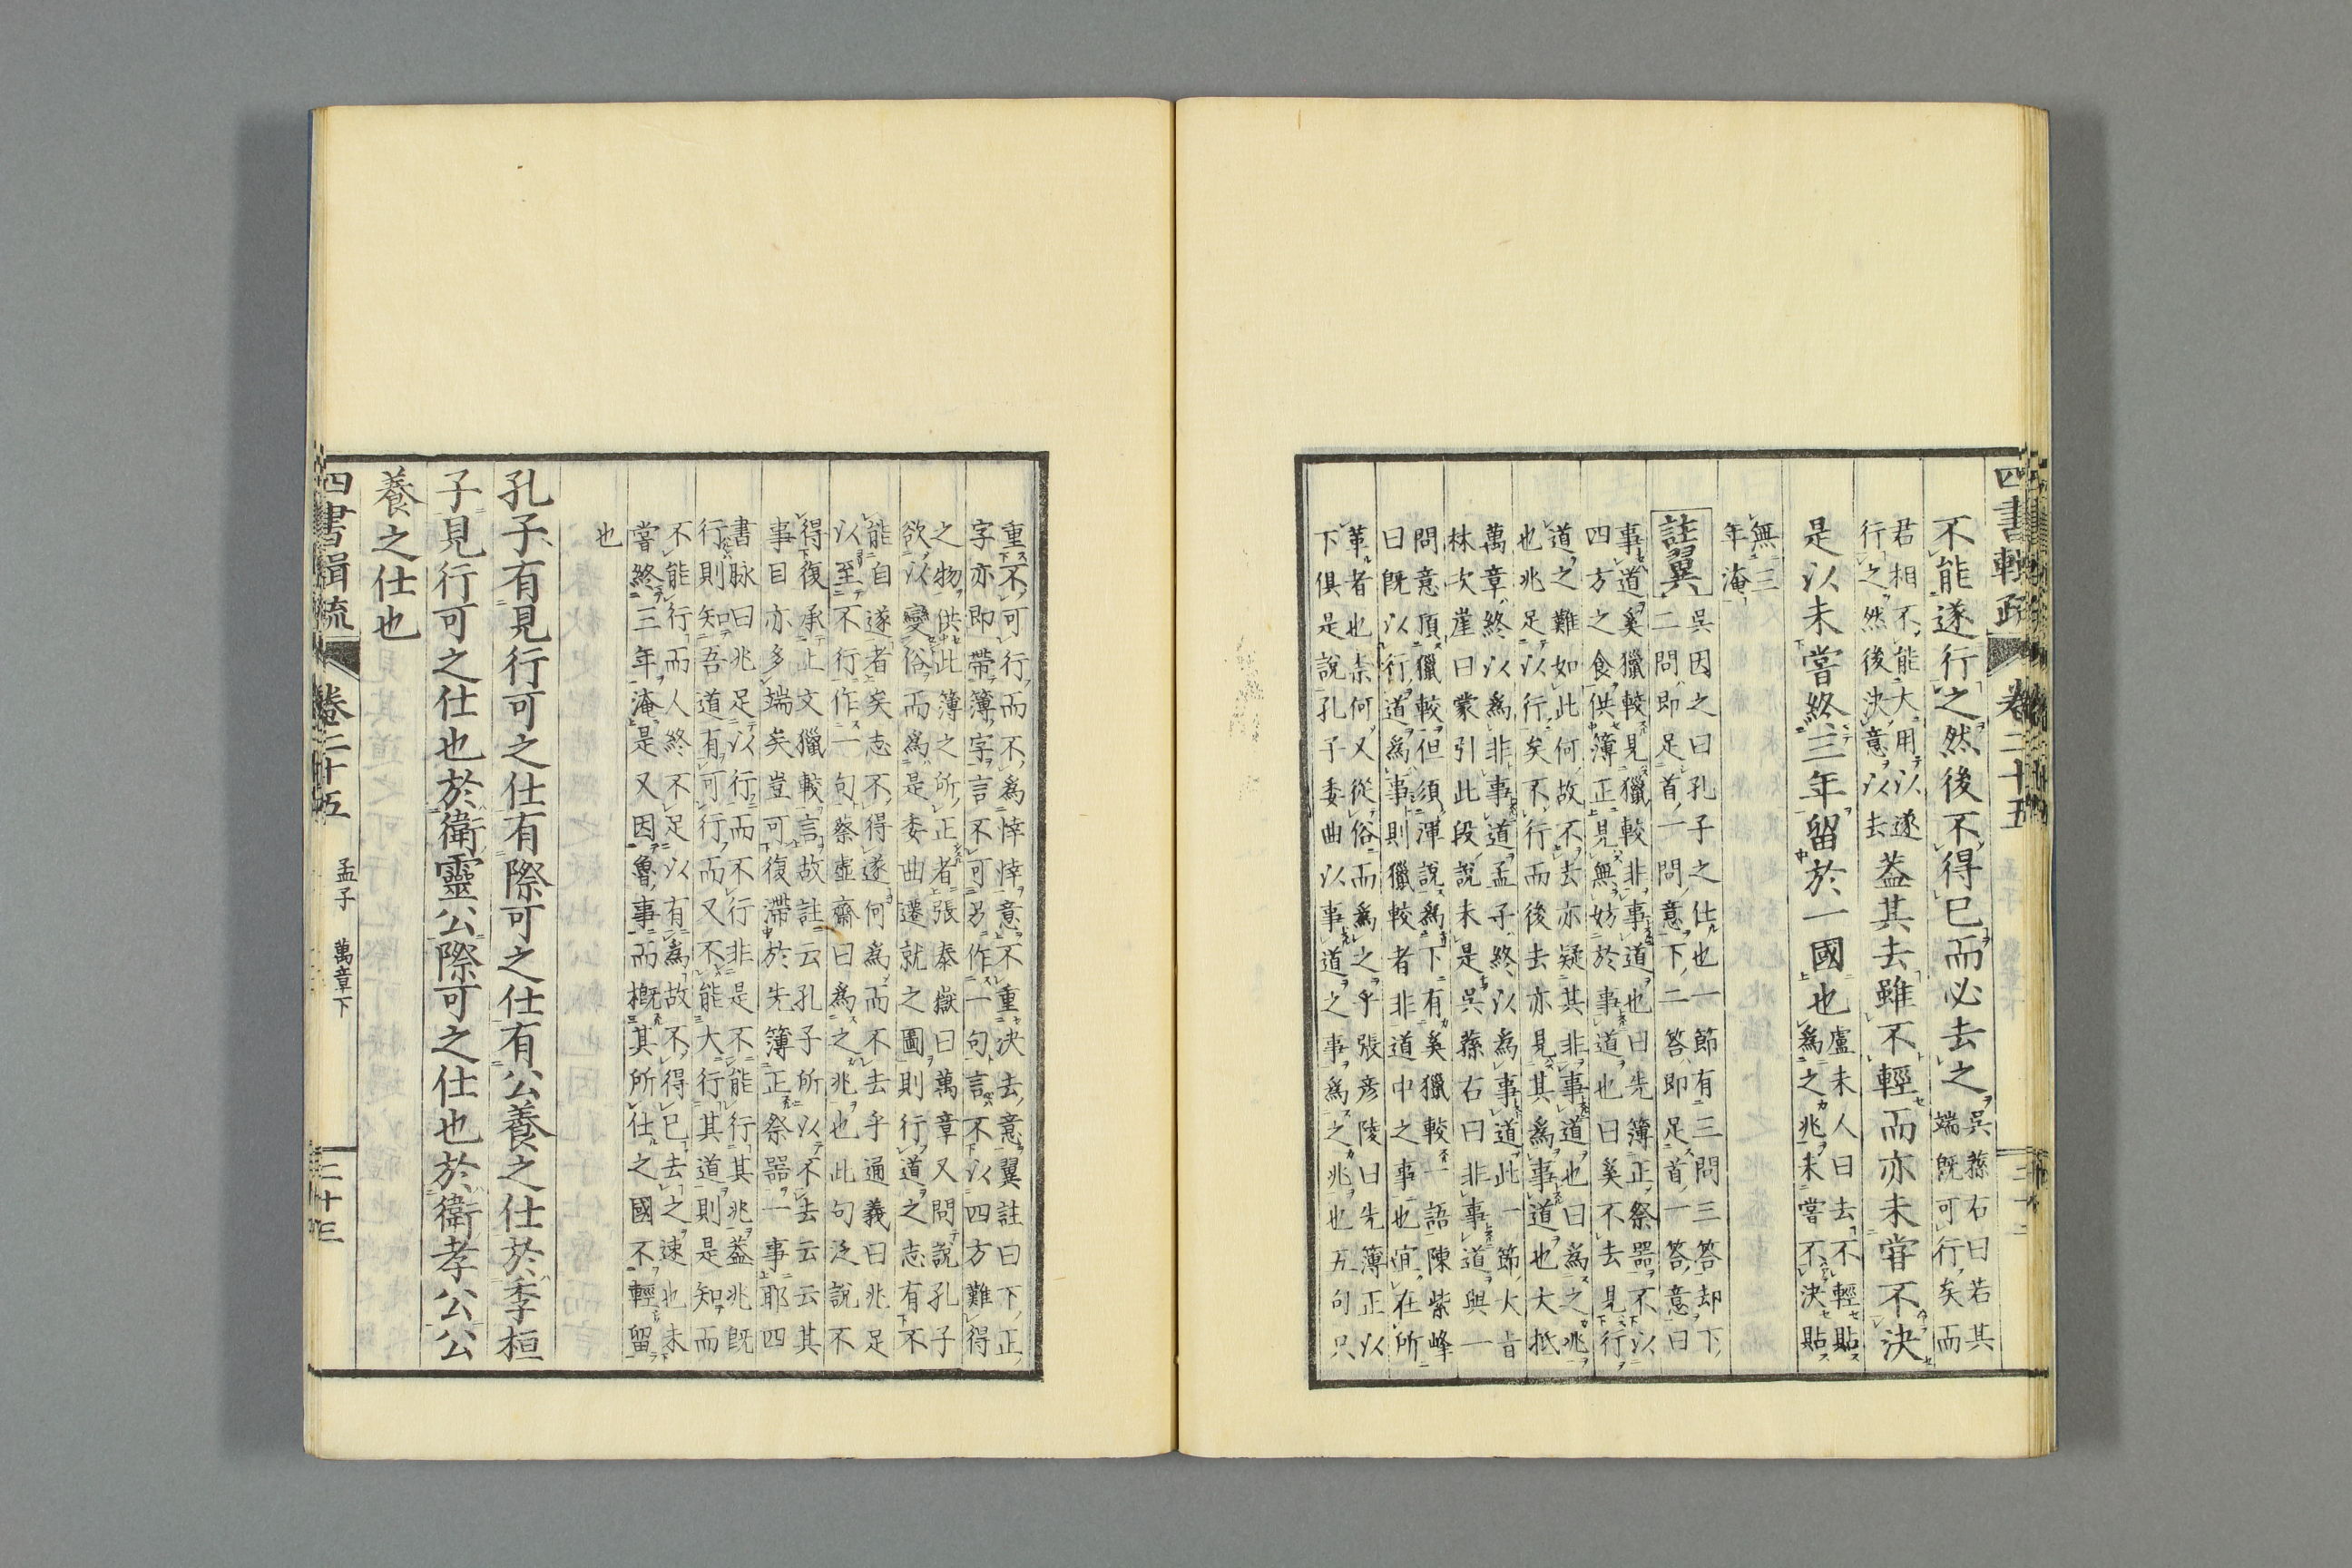 四書輯疏 卷二十五
不能遂行之然後不得已而必去之
吳蓀右曰若其
端既可行矣而
君相不能大用以遂
行之然後決意以去
蓋其去雖不輕而亦未甞不決
是以未嘗終三年留於一國也
盧未人曰去不輕貼
為之兆未嘗不決貼
無三
年淹
註翼
吳因之曰孔子之仕也一節有三問三答却下
二問即足首一問意下二答即足首一答意曰
事道奚獵較見獵較非事道也曰先簿正祭器不以
四方之食供簿正見無妨於事道也曰奚不去見行
道之難如此何故不去亦疑其非事道也曰為之兆
也兆足以行矣不行而後去亦見其為事道也大抵
萬章終以為非事道孟子終以為事道此一節大旨
林次崖曰蒙引此段說未是吳蓀右曰非事道與一
問意頂獵較但須渾說為下有奚獵較一語陳紫峰
曰既以行道為事則獵較者非道中之事也宜在所
革者也柰何又從俗而為之乎張彥陵曰先簿正以
下俱是說孔子委曲以事道之事為之兆也五句只
重不可行而不為悻悻意不重決去意翼註曰下正
字亦即帶簿字言不可另作一句言不以四方難得
之物供此簿之所正者張泰嶽曰萬章又問說孔子
欲以變俗而為是委曲遷就之圖則行道之志有不
能自遂者矣志不得遂何為而不去乎通義曰兆足
以至不行作一句蔡虛齋曰為之兆也此句泛說不
得復承上文獵較言故註云孔子所以不去云云其
事目亦多端矣豈可復滯於先簿正祭器一事耶四
書脉曰兆足以行而不行非是不能行其兆蓋兆既
行則知吾道有可行而又不能大行其道則是知而
不能行而人終不足以有為故不得已去之速也未
嘗終三年淹是又因魯事而概其所仕之國不輕留
也
孔子有見行可之仕有際可之仕有公養之仕於季桓
子見行可之仕也於衛靈公際可之仕也於衛孝公公
養之仕也
四書輯疏 卷二十五 孟子 萬章下 二十三